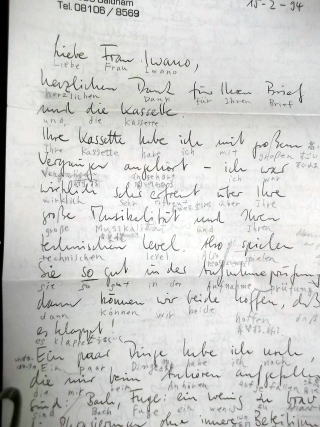 Baldham
Tel. 08106 / 8569
15-2-94
Liebe Frau Iwano,
Liebe Frau Iwano
herzlichen Dank für Ihren Brief
herzlichen Dank für Ihren Brief
und die Kassette.
und die Kassette
Ihre Kassette habe ich mit großem
Ihre Kassette habe ich mit großem
Vergnügen angehört – ich war
ich war
wirklich sehr erfreut über Ihre
wirklich sehr erfreut über Ihre
große Musikalität und Ihren
große Musikalität und Ihren
technischen level. Also spielen
technischen level Also spielen
Sie so gut in der Aufnahmeprüfung,
sie so gut in der Aufnahme prüfung
dann können wir beide hoffen, daß
dann können wir beide hoffen daß
es klappt!
es klappt
Ein paar Dinge habe ich noch,
Ein paar Dinge habe ich noch
die mir beim Anhören aufgefallen
die mir beim Anhören aufgefallen
sind: Bach, Fuge: ein wenig zu brav
sind Bach Fuge ein wenig zu brav
ohne innere